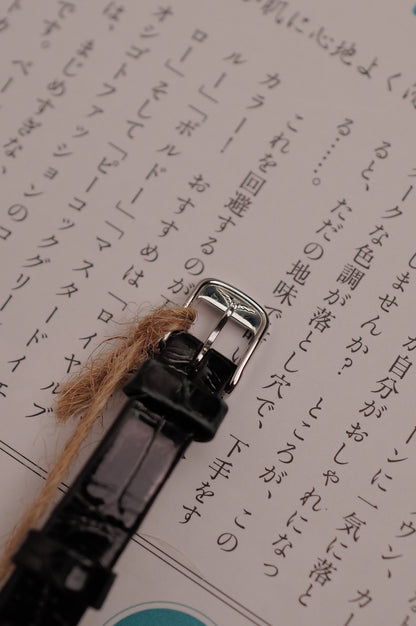 肌に心地よく
ウン、カ
ーンに一気に落と
自分がおしゃれになっ
しませんか？　ところが、この
ークな色調が落とし穴で、下手をす
ると、ただの地味
る……。
これを回避するのが
カラー！　おすすめは「ロイヤルブ
ルー」「ボルドー」「マスター
ロー」そして「ピーコックグリー
オシゴトファッションのコ
は、まじめすぎない
です。ベー